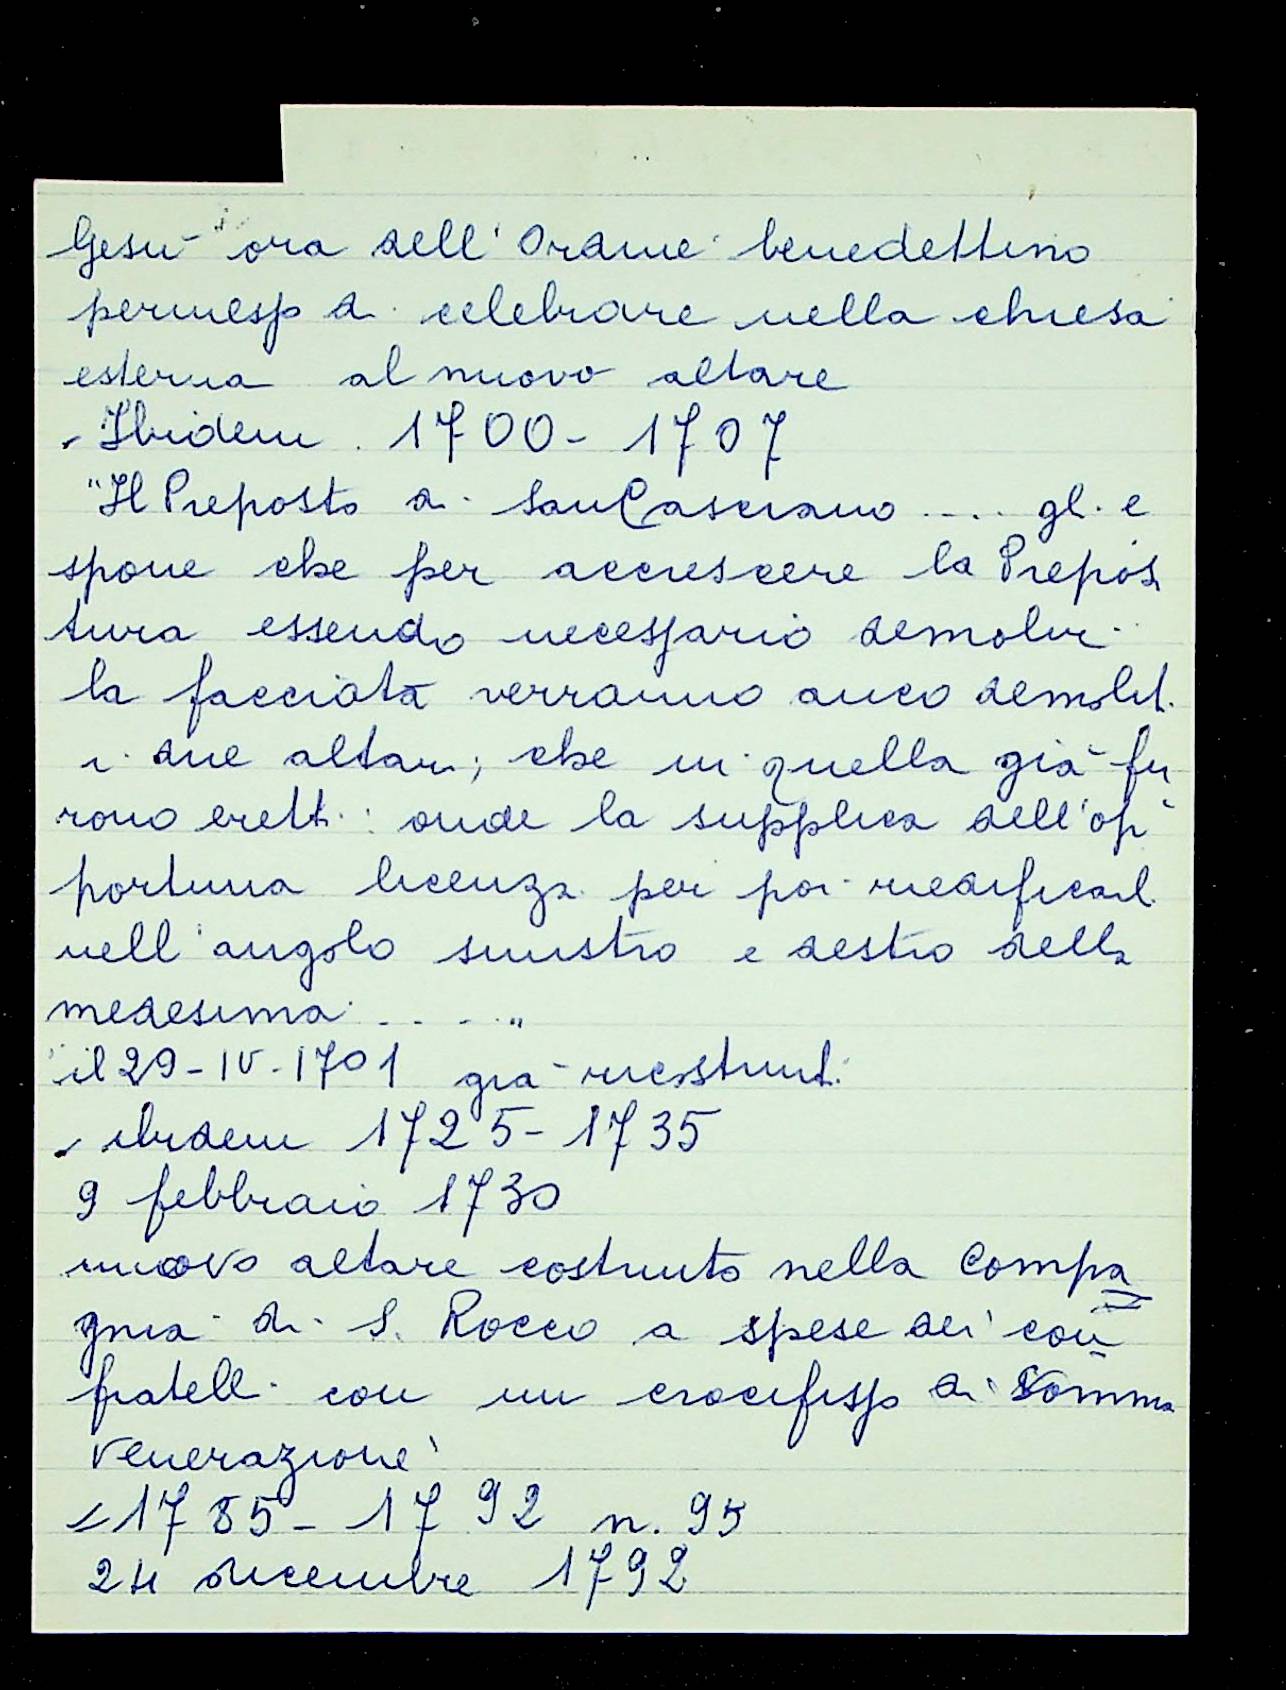 Gesù ora dell'Ordine benedettino
permesso di celebrare nella chiesa
esterna al nuovo altare
- Ibidem 1700 - 1707
"Il Preposto di San Casciano .... gli e
spone che per accrescere la Prepos
tura essendo necessario demolir
la facciata verranno anco demoliti
i due altari, che in quella già fu
rono eretti: onde la supplica dell'op
portuna licenza per poi riedificarli
nell'angolo sinistro e destro della
medesima ...."
il 29-IV-1701 già ricostruiti
- ibidem 1725 - 1735
9 febbraio 1730
nuovo altare costruito nella Compa
gnia di S. Rocco a spese dei con
fratelli con un crocifisso di somma
venerazione
- 1785 - 1792 n. 95
24 dicembre 1792